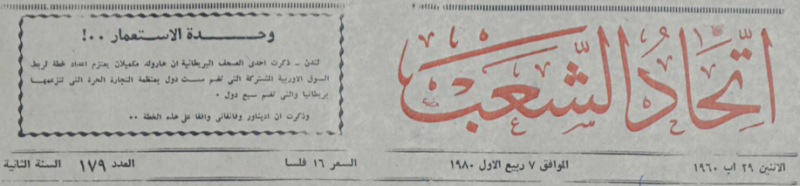 اتحاد الشعب
وحدة الاستعمار ..!
لندن ـ ذكرت احدى الصحف البريطانية ان هارولد مكميلان يعتزم اعداد خطة لربط
السوق الاوربية المشتركة التي تضم ست دول بمنظمة التجارة الحرة التي تتزعمها
بريطانيا والتي تضم سبع دول ٠
وذكرت ان اديناور وفانفاني وافقا على هذه الخطة ٠٠
الاثنين ٢٩ اب ١٩٦٠
الموافق ٧ ربيع الاول ١٩٨٠
السعر ١٦ فلسا
العدد ١٧٩
السنة الثانية